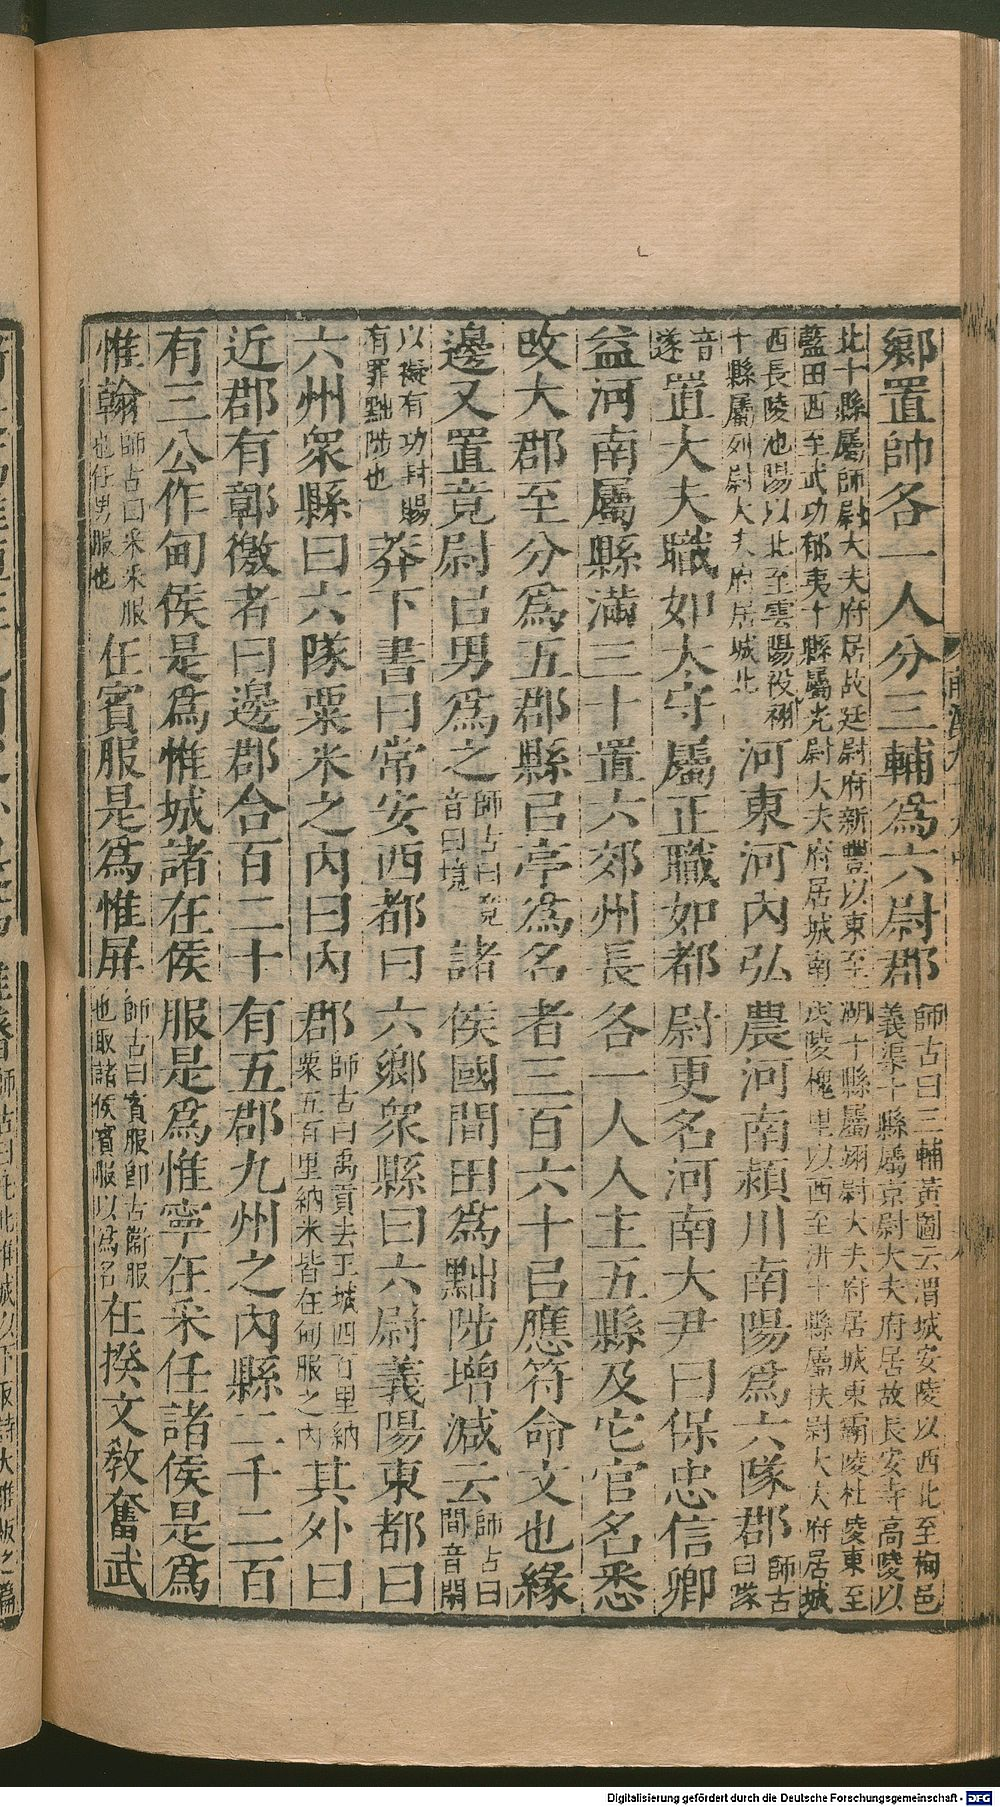 鄉置帥各一人分三輔為六尉郡師古曰三輔黃圖云渭城安陵以西北至栒邑義渠十縣屬京尉大夫府居故長安寺高陵以
北十縣屬師尉大夫府居故廷尉府新豐以東至湖十縣屬翊尉大夫府居城東霸陵杜陵東至
藍田西至武功郁夷十縣屬光尉大夫府居城南茂陵槐里以西至汧十縣屬扶尉大夫府居城
西長陵池陽以北至雲陽祋祤十縣屬列尉大夫府居城北河東河內弘農河南潁川南陽為六隊郡師古曰隊
音遂置大夫職如太守屬正職如都尉更名河南大尹曰保忠信卿
益河南屬縣滿三十置六郊州長各一人人主五縣及它官名悉
改大郡至分為五郡縣㠯亭為名者三百六十㠯應符命文也緣
邊又置竟尉㠯男為之師古曰竟音曰境諸侯國間田為黜陟增減云師古曰間音閑
以擬有功封賜有罪黜陟也莽下書曰常安西都曰六鄉眾縣曰六尉義陽東都曰
六州眾縣曰六隊粟米之內曰內郡師古曰禹貢去王城四百里納粟五百里納米皆在甸服之內其外曰
近郡有鄣徼者曰邊郡合百二十有五郡九州之內縣二千二百
有三公作甸侯是為惟城諸在侯服是為惟寧在采任諸侯是為
惟翰師古曰采采服也任男服也在賓服是為惟屏師古曰賓服即古衞服也取諸侯賓服以為名在揆文教奮武
Digitalisierung gefördert durch die Deutsche Forschungsgemeinschaft - DFG